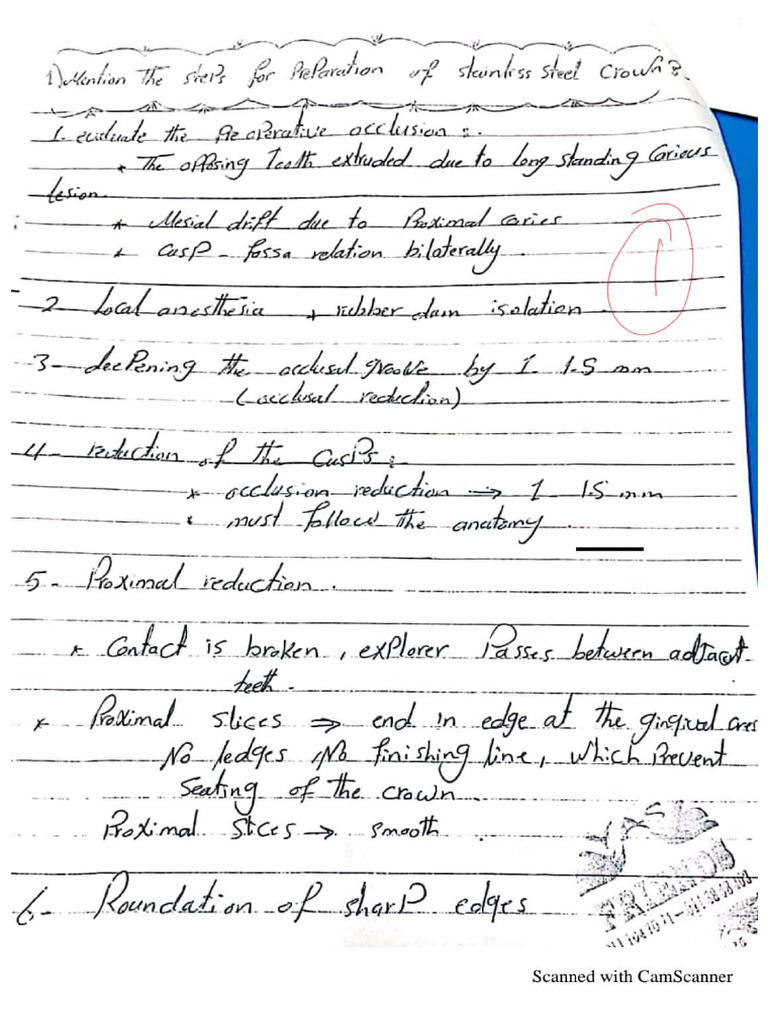 1) Mention The steps for PrePararion of stainless steel Crown?
1. evaluate the Preoperative occlusion:.
* The opposing Teeth extruded due to long standing Carious
lesion.
* Mesial drift due to Proximal caries
* CusP - fossa relation bilaterally.
1
2 Local anesthesia + rubber dam isolation.
3- deePening the occlusal groove by 1 1.5 mm
(occlusal reduction)
4- reduction of the CusPs:
* occlusion reduction → 1 1.5 mm
* must follow the anatomy.
5- Proximal reduction.
* Contact is broken, exPlorer Passes between adjacent
teeth.
* Proximal slices ⇒ end in edge at the gingival area
No ledges, No finishing line, which Prevent
Seating of the crown.
Proximal slices → smooth.
6- Roundation of sharP edges
FRIENDS
Scanned with CamScanner